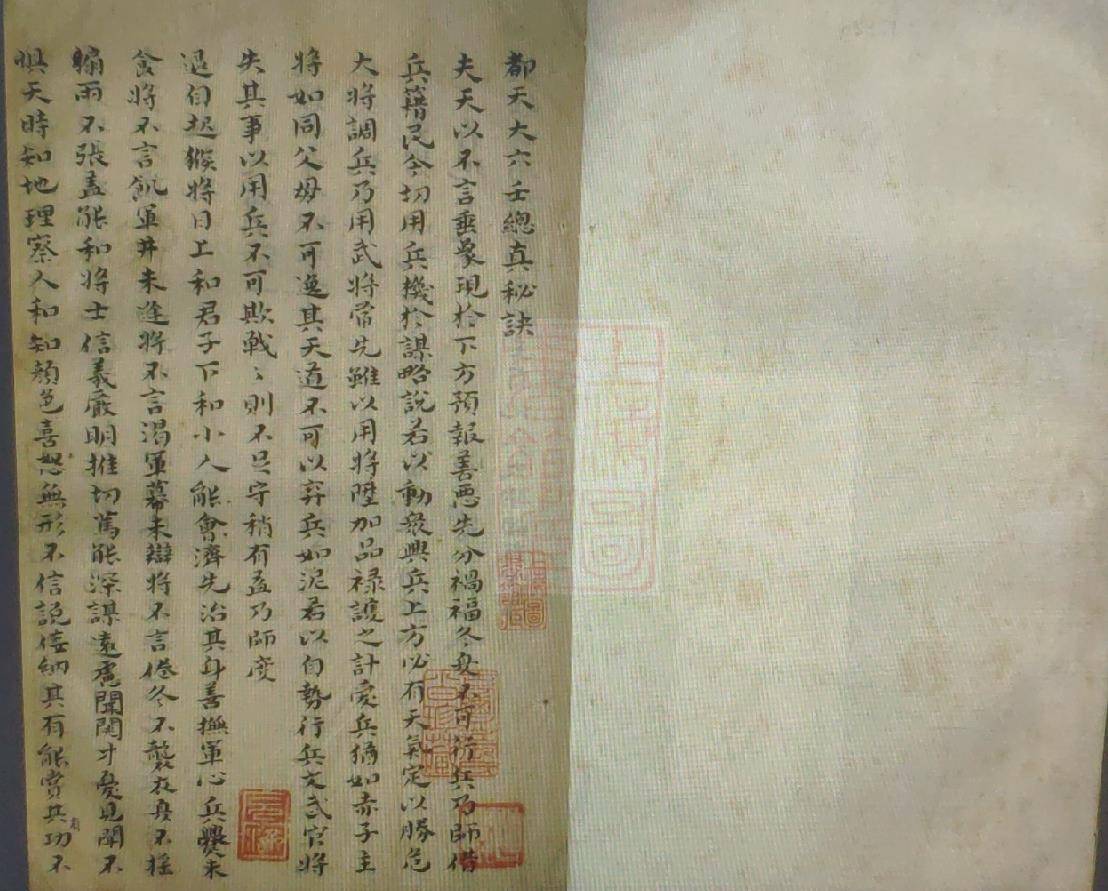 都天大六壬總真秘訣
夫天以不言垂象現於下方預報善惡先分禍福冬夏不可行兵乃師借
兵籍民今切用兵機於謀略説若以動衆興兵上方必有天氣定以勝危
大將調兵乃用武將常先雖以用將陞加品禄護之計愛兵猶如赤子主
將如同父母不可逸其天道不可以弃兵如泥若以自勢行兵文武官將
失其事以用兵不可欺戰〻則不足守稍有孟乃師度
過自起將日上和君子下和小人能會濟先治其身善撫軍心兵爨未
食將不言飢軍井未逹將不言渴軍幕未辦將不言倦冬不襲衣夏不摇
扇雨不張盖能和將士信義嚴明推切篤能深謀遠慮聞閗才愛見聞不
惧天時知地理察人和知顔色喜怒無形不信説倿納其有能賞其功不